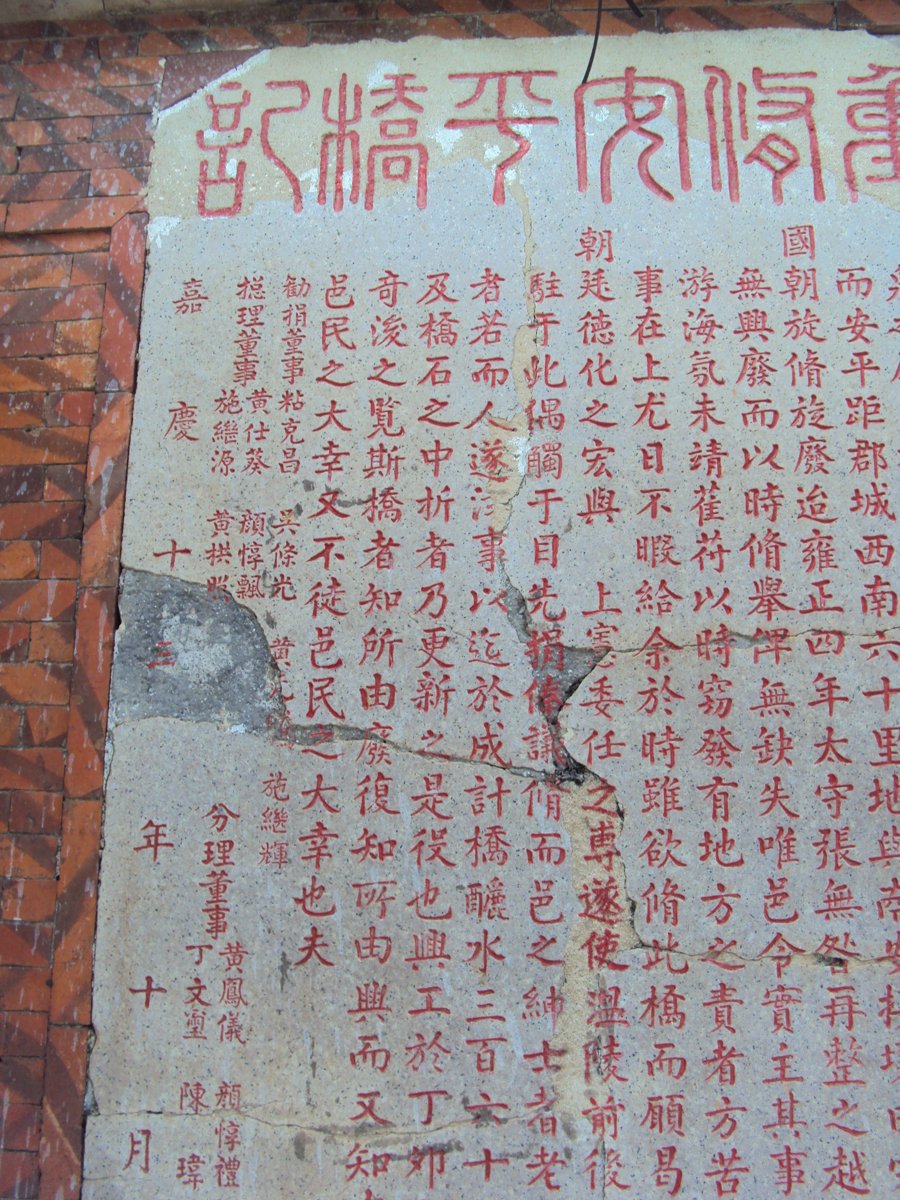 重脩安平橋記
而安平距郡城西南六十里地與南安
國朝旋脩旋廢迨雍正四年太守張無咎再整之越
無興廢而以時脩舉俾無缺失唯邑令實主其事
游海氛未靖萑苻以時窃發有地方之責者方苦
事在上尤日不暇給余於時雖欲脩此橋而願曷
朝廷德化之宏與 上憲委任之專遂使溫陵前後
駐于此偶觸于目先捐俸議脩而邑之紳士耆老
者若而人遂注事以迄於成計橋釃水三百六十
及橋石之中折者乃更新之是役也興工於丁卯
奇浚之覧斯橋者知所由廢復知所由興而又知
邑民之大幸又不徒邑民之大幸也夫
勸捐董事 粘克昌 吳條光 黃元 施繼輝
揔理董事 黃仕葵 顏惇飄
施繼源 黃拱照
分理董事 黃鳳儀 顏惇禮
丁文壐 陳瑋
嘉慶十三年十月